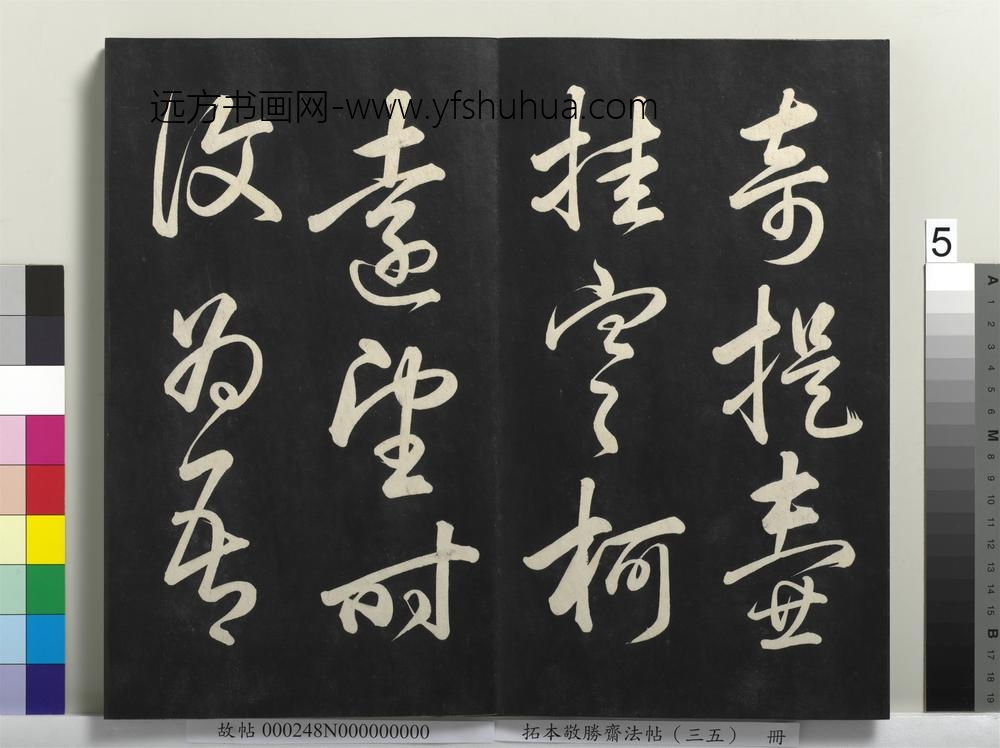 远方书画网-www.yfshuhua.com
奇提壺
挂寒柯
遠望時
復為吾
5
A
1
2
3
4
5
6
M
8
9
10
11
12
13
14
15
B
17
18
19
故帖 000248N000000000
拓本敬勝齋法帖（三五） 冊